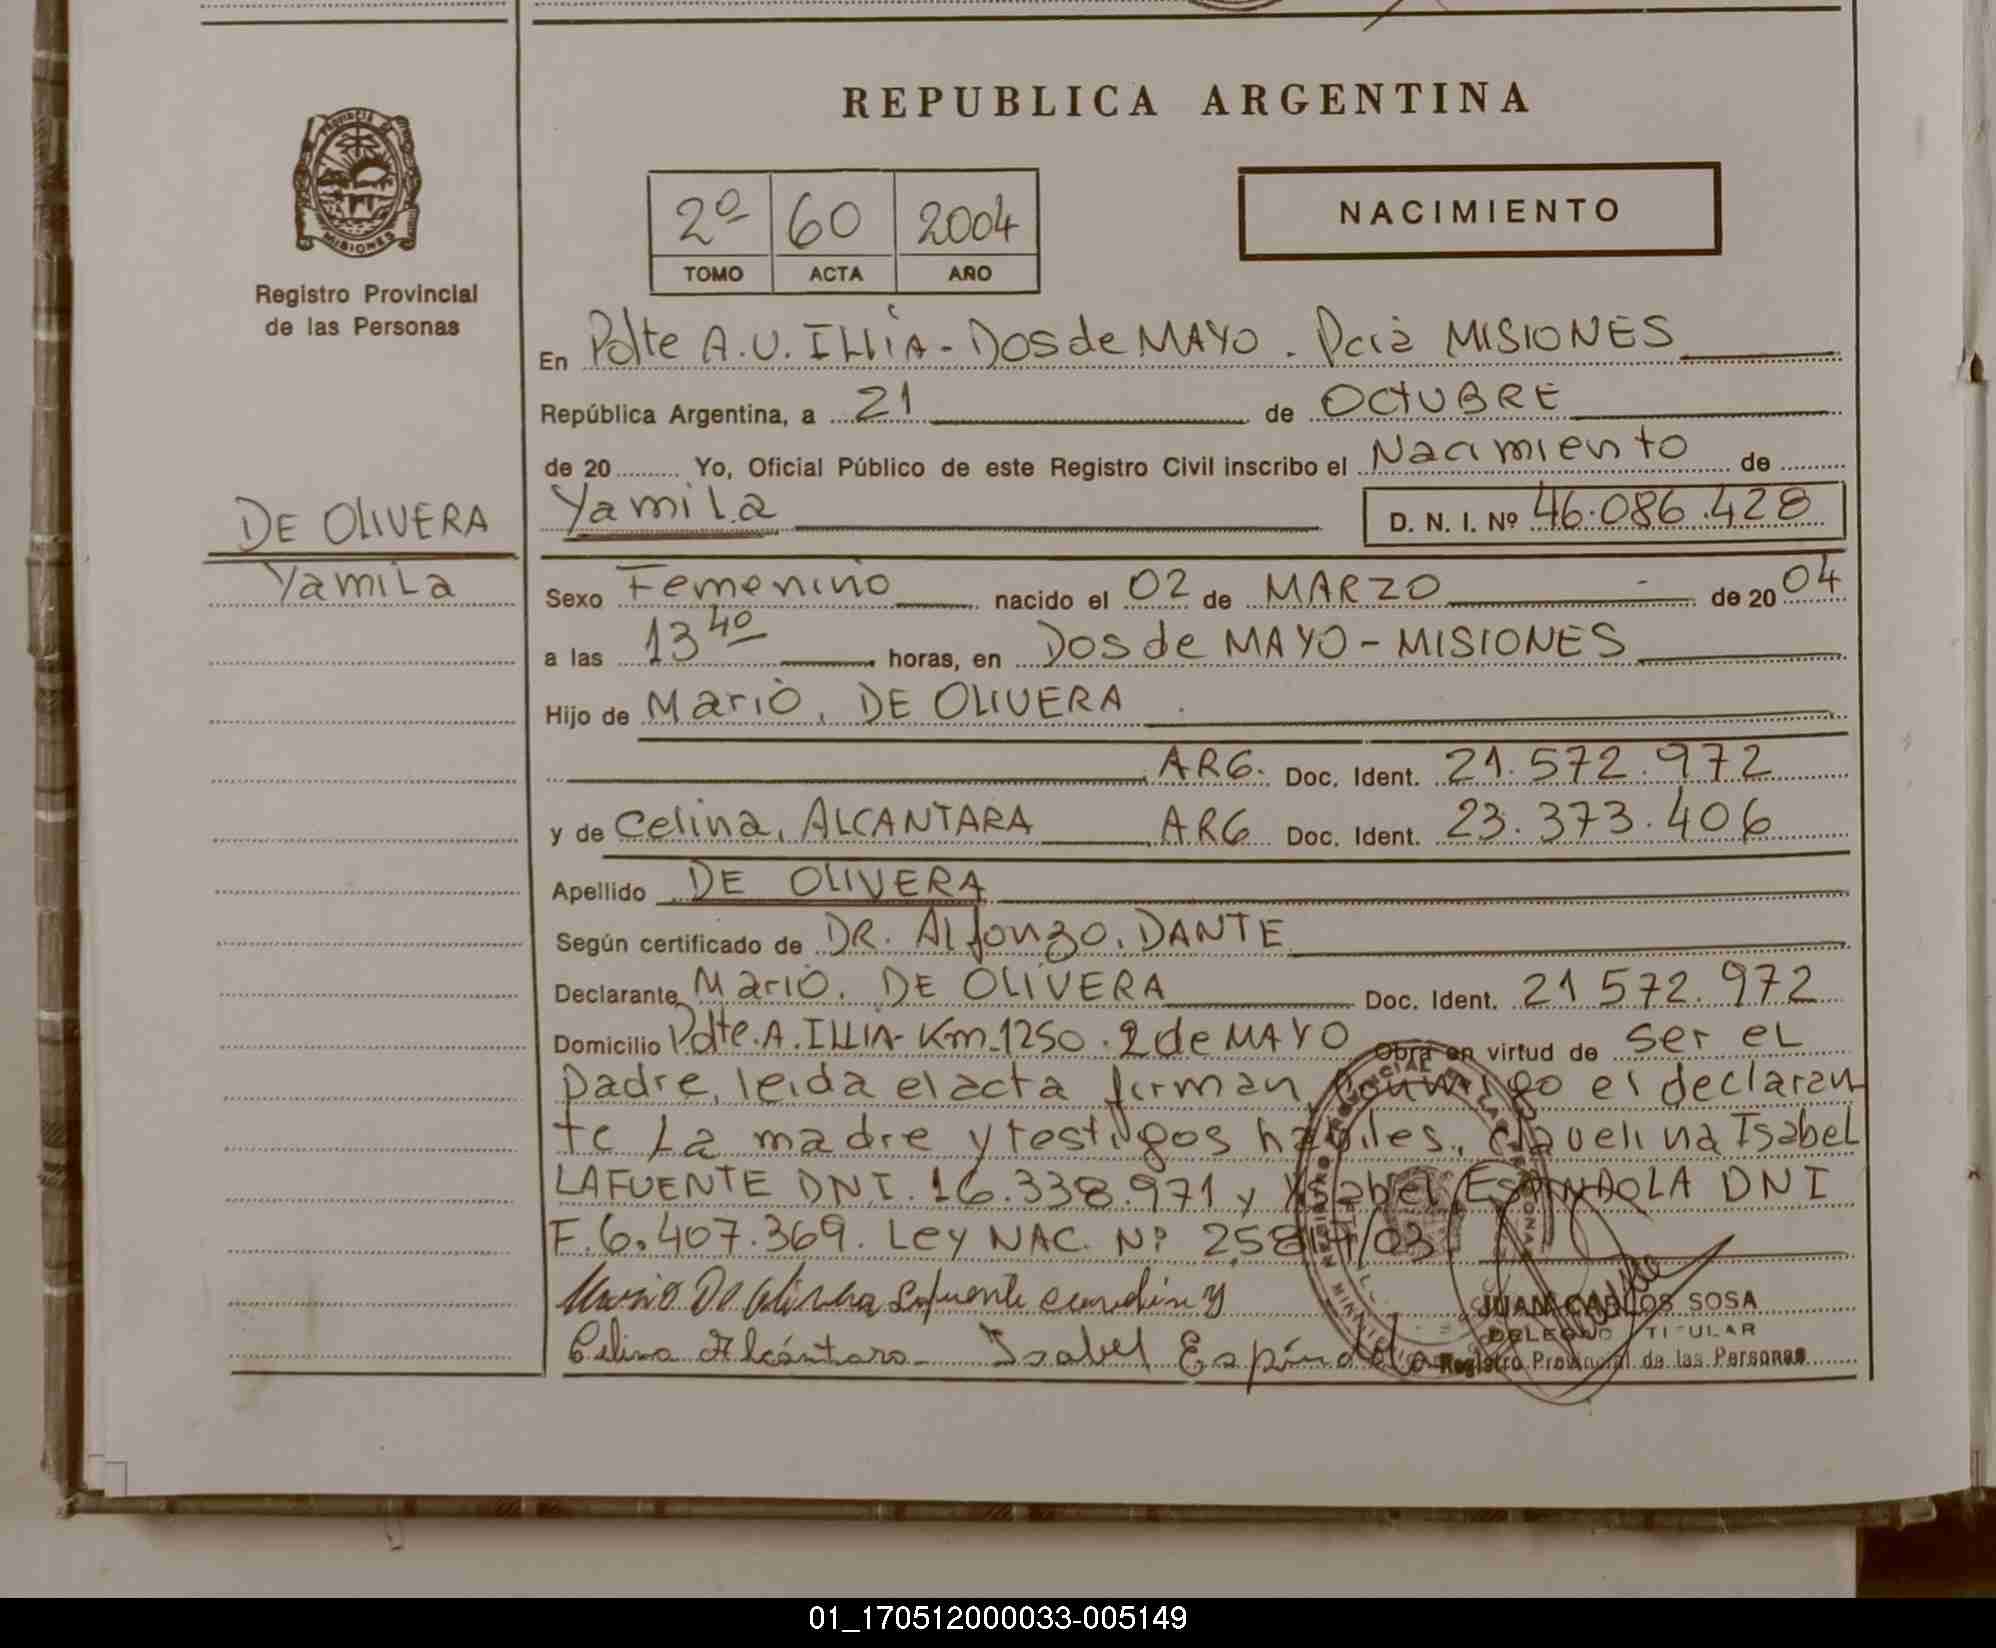 REPUBLICA ARGENTINA
PROVINCIA DE
MISIONES
Registro Provincial
de las Personas
2º 60 2004
TOMO ACTA AÑO
NACIMIENTO
En Pdte A.U. ILLIA - Dos de MAYO. Pciа MISIONES
República Argentina, a 21 de OCTUBRE
de 20 Yo, Oficial Público de este Registro Civil inscribo el Nacimiento de
DE OLIVERA
Yamila
Yamila D. N. I. Nº 46.086.428
Sexo Femenino nacido el 02 de MARZO de 20 04
a las 13 40 horas, en Dos de MAYO - MISIONES
Hijo de Mario, DE OLIVERA
ARG. Doc. Ident. 21.572.972
y de Celina, ALCANTARA ARG Doc. Ident. 23.373.406
Apellido DE OLIVERA
Según certificado de DR. Alfonzo, DANTE
Declarante Mario, DE OLIVERA Doc. Ident. 21 572.972
Domicilio Pdte. A. ILLIA - Km. 1250. 2 de MAYO Obra en virtud de ser el
padre, leida el acta firman, conmigo el declaran
te La madre y testigos habiles, Clavelina Isabel
LAFUENTE DNI. 16.338.971 y Ysabel ESPINDOLA DNI
F. 6.407.369. Ley NAC. Nº 25819/03
Mario De Olivera Lafuente
Celina Alcántara Isabel Espíndola
JUAN CARLOS SOSA
DELEGADO TITULAR
Registro Provincial de las Personas
01_170512000033-005149